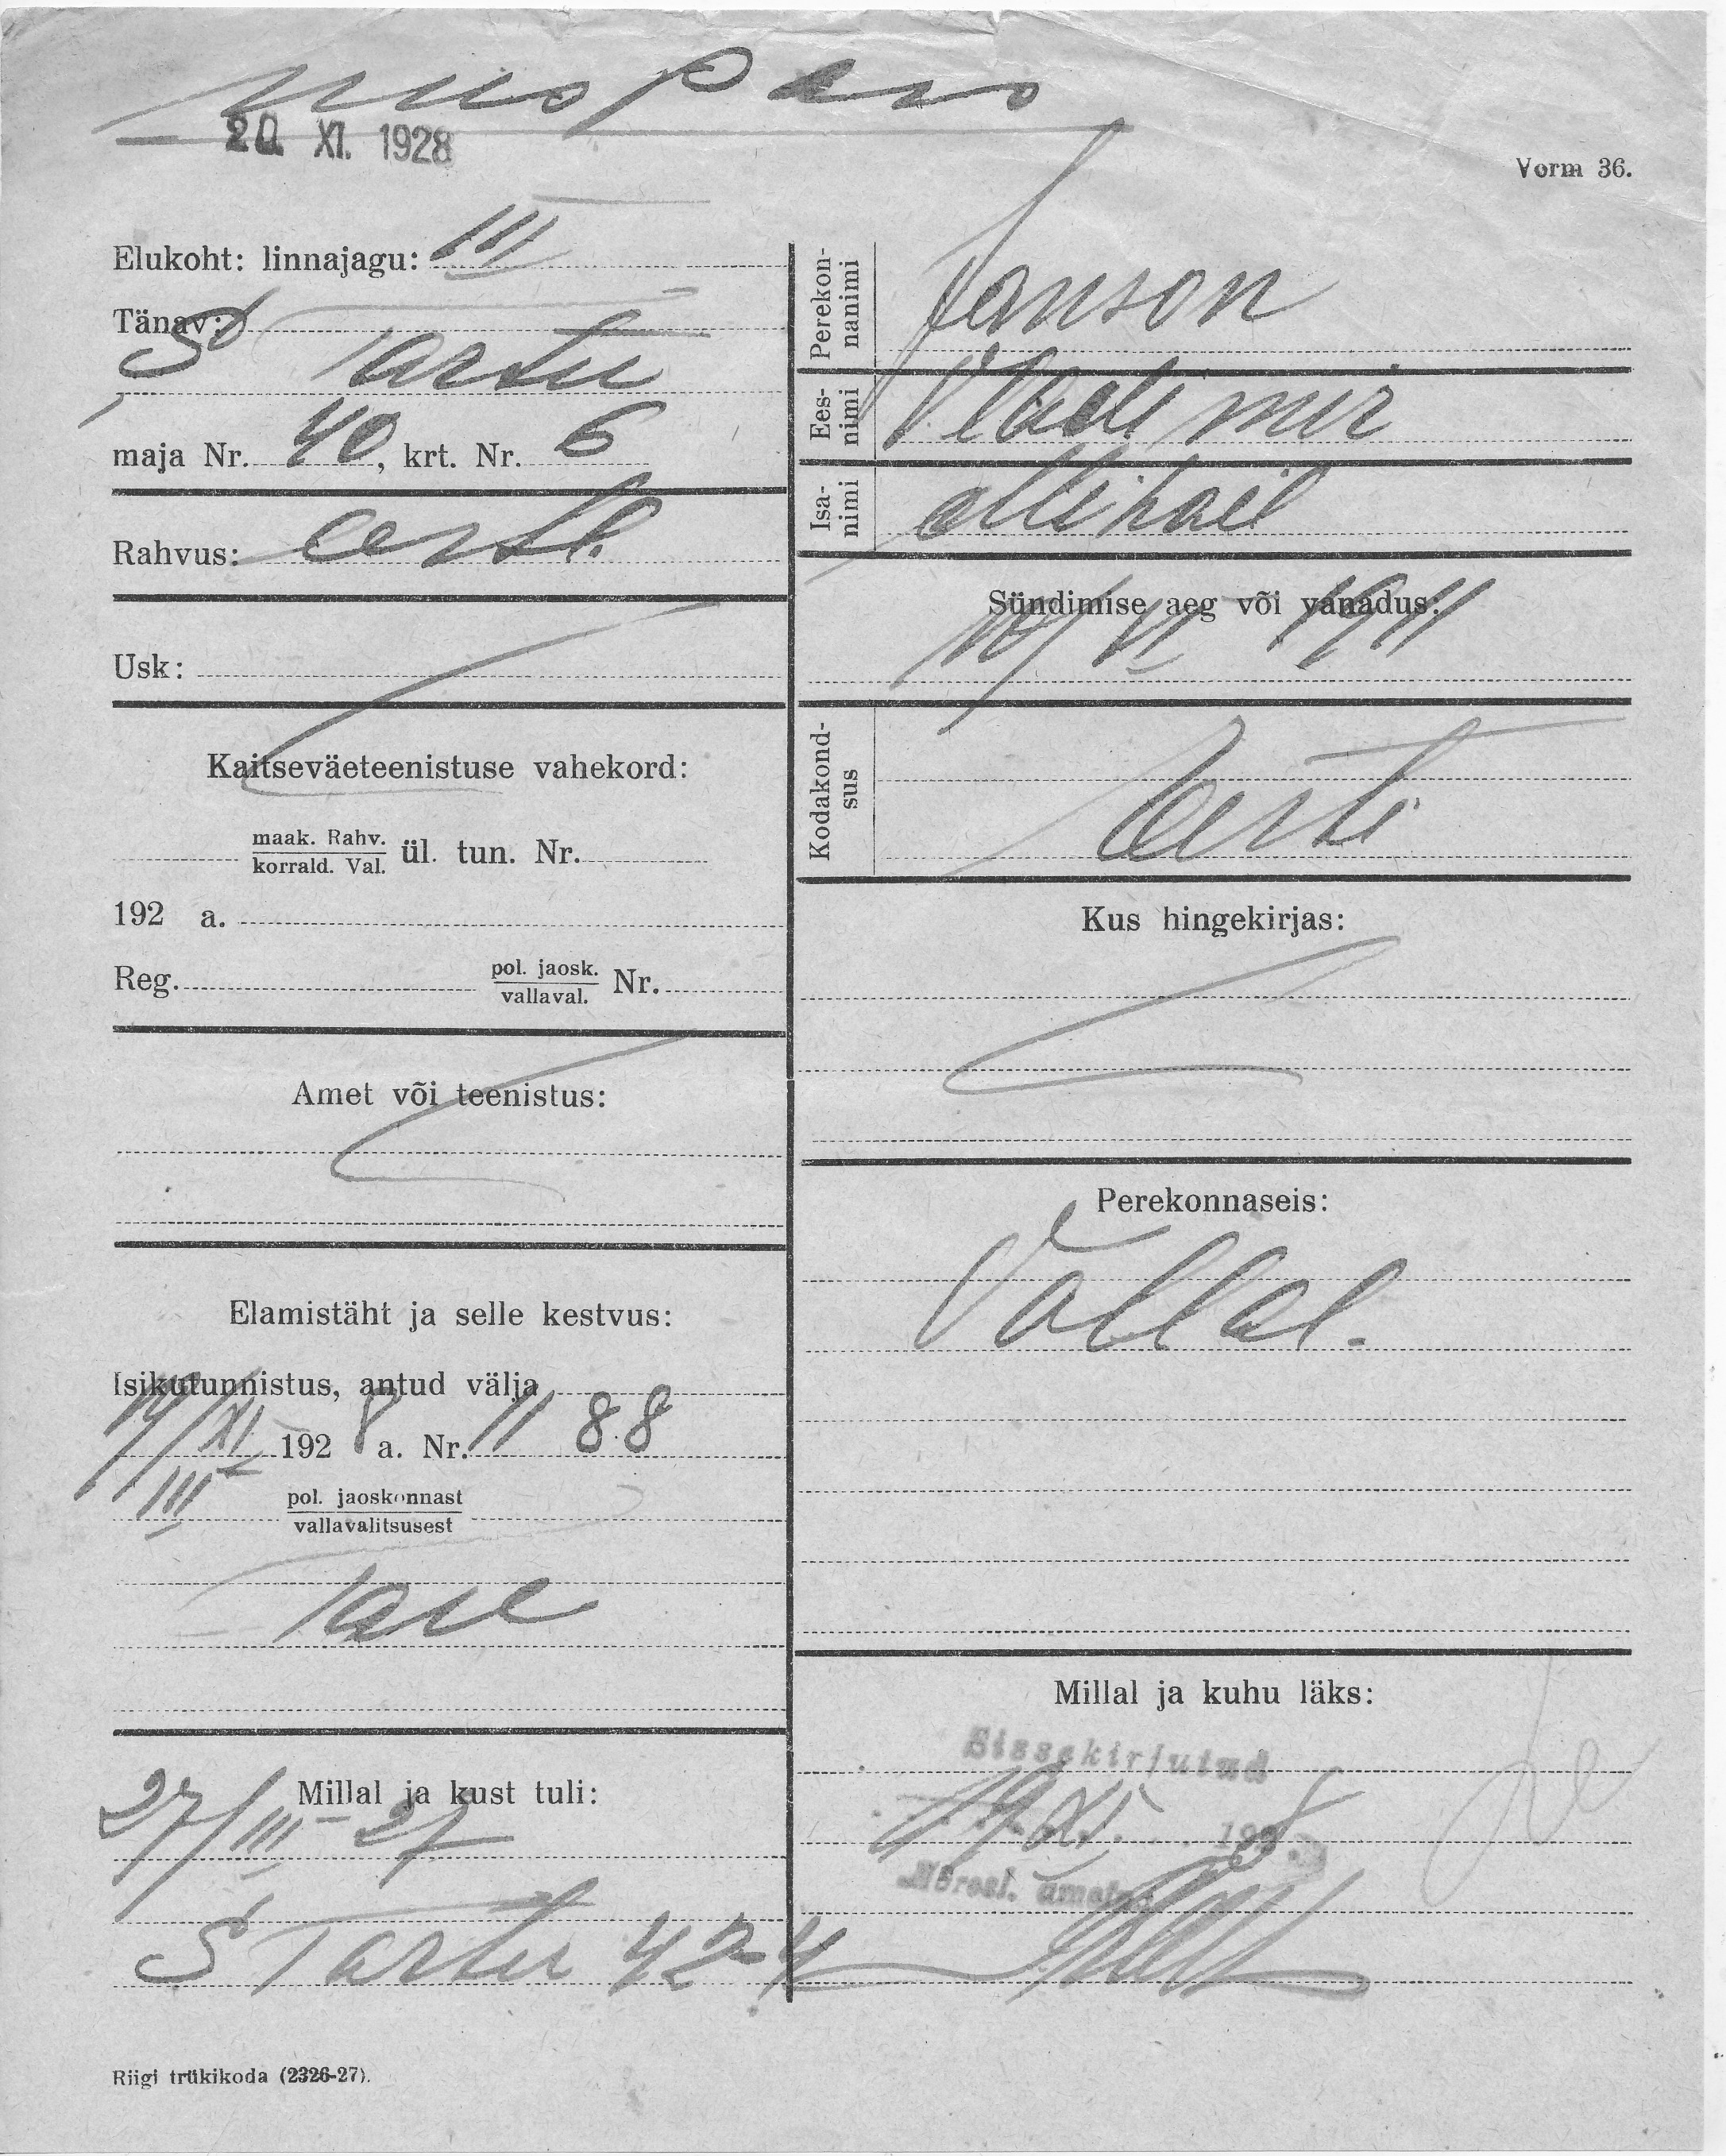 20. XI. 1928
Vorm 36.
Elukoht: linnajagu: III
Tänav: S
Tartu
maja Nr. 40, krt. Nr. 6
Rahvus: eestl.
Usk:
Kaitseväeteenistuse vahekord:
maak. Rahv.
korrald. Val. ül. tun. Nr.
192 a.
Reg. pol. jaosk. Nr.
vallaval.
Amet või teenistus:
Elamistäht ja selle kestvus:
Isikutunnistus, antud välja
14/XI 1928 a. Nr. 1188
III pol. jaoskonnast
vallavalitsusest
Millal ja kust tuli:
27/III 27
S Tartu 42-4
Perekon-
nanimi
Janson
Ees-
nimi
Vladimir
Isa-
nimi
Mihail
Sündimise aeg või vanadus:
10/VI 1911
Kodakond-
sus
Eesti
Kus hingekirjas:
Perekonnaseis:
Vallal.
Millal ja kuhu läks:
Sissekirjutud
19 XI 1928
Riigi trükikoda (2326-27).